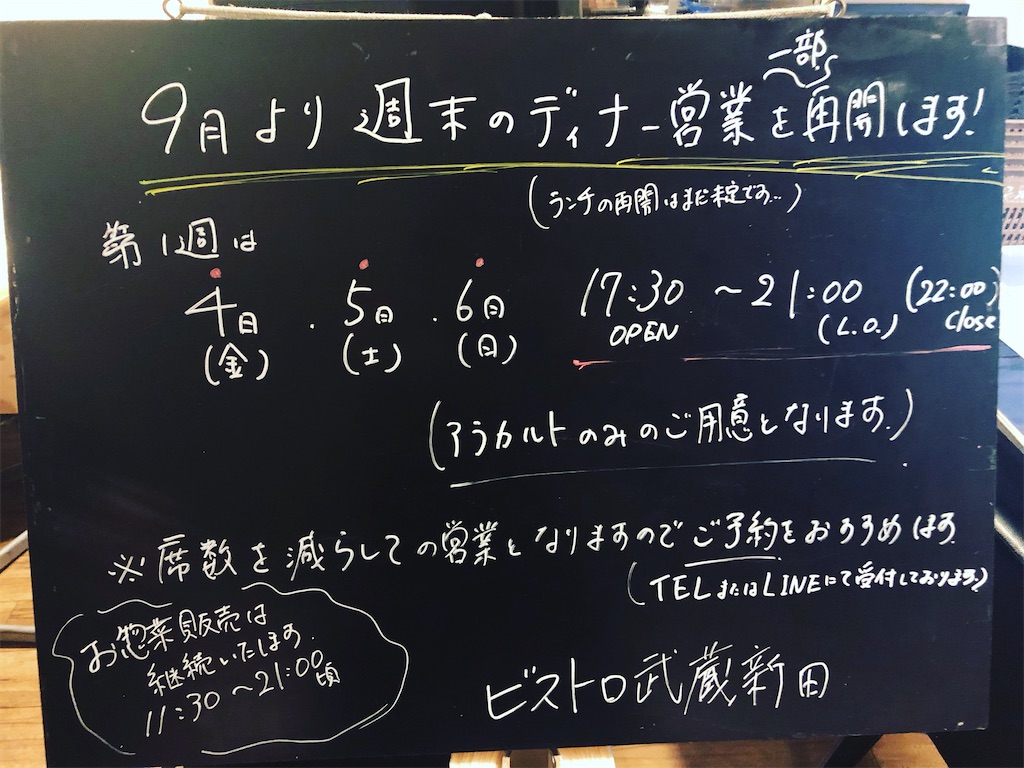 一部
9月より週末のディナー営業を再開します!
(ランチの再開はまだ未定です…)
第1週は
4日 . 5日 . 6日 17:30 ~ 21:00 (22:00)
OPEN (L.O.) Close
(金) (土) (日)
(アラカルトのみのご用意となります.)
※席数を減らしての営業となりますのでご予約をおすすめします
(TELまたはLINEにて受付しております)
お惣菜販売は
継続いたします.
11:30~21:00頃
ビストロ武蔵新田